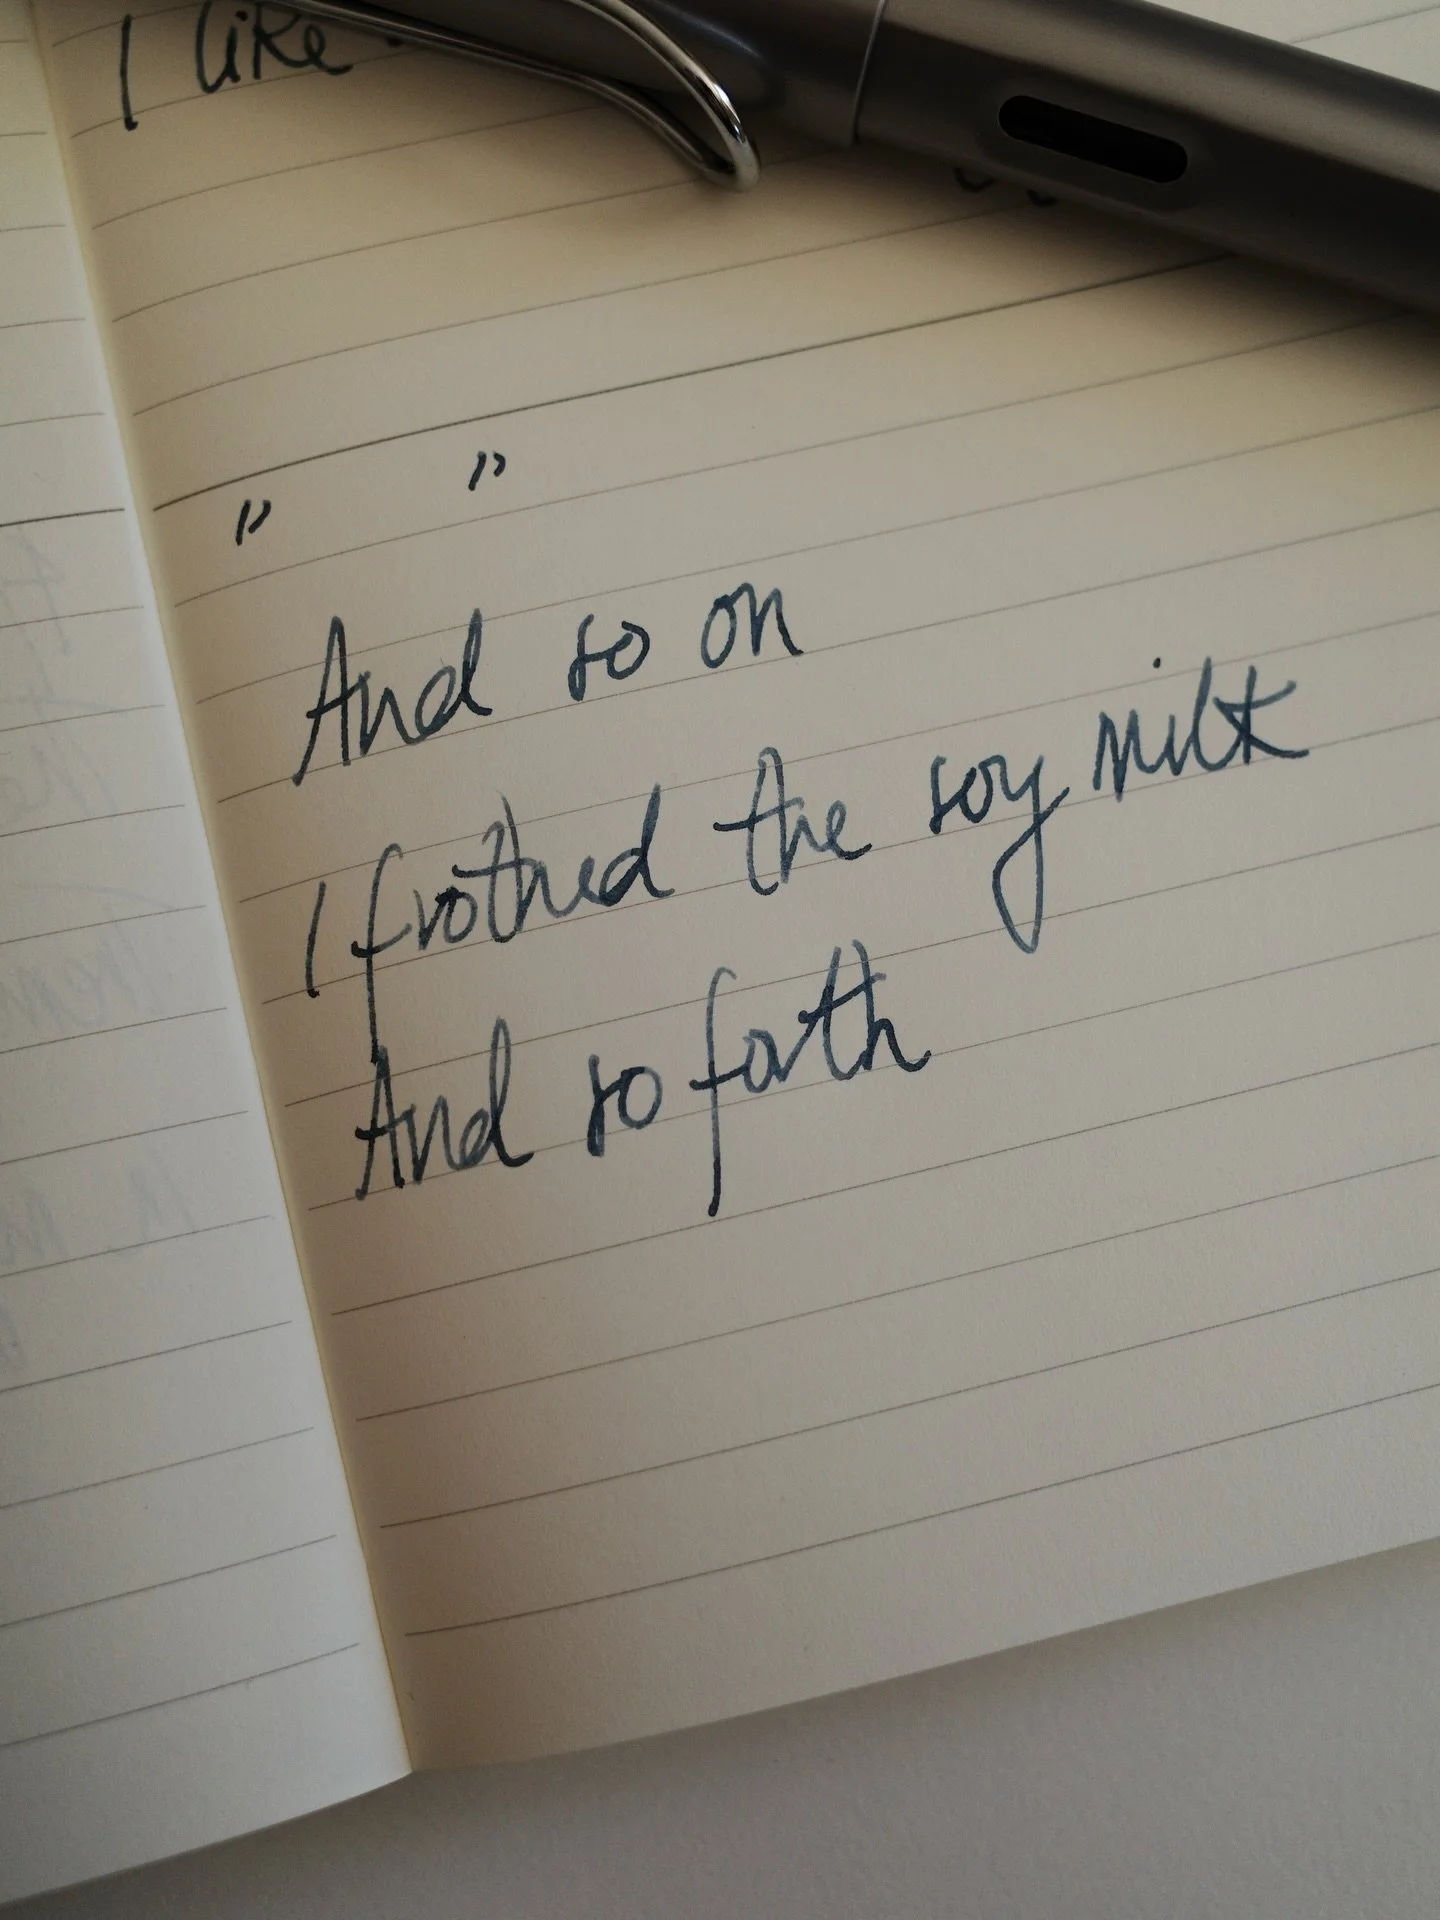 I like
" "
And so on
I frothed the soy milk
And so forth